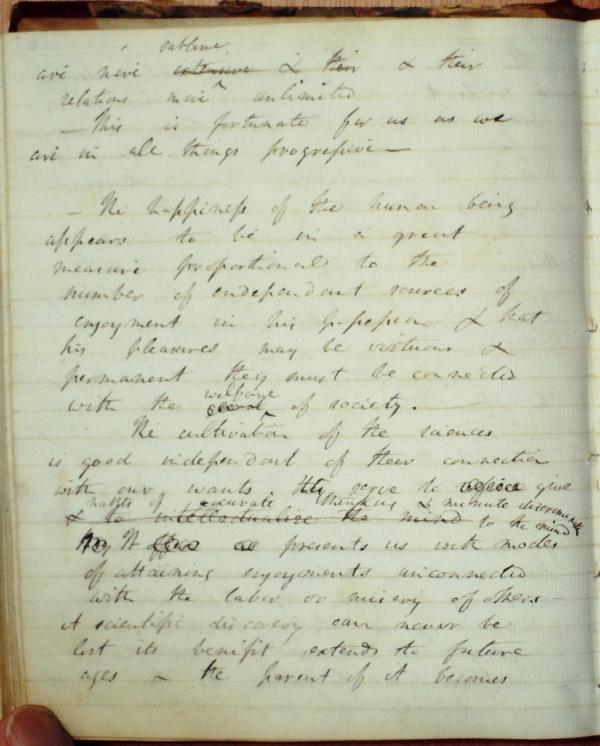 sublime
are more extensive & their & their
relations more unlimited
- This is fortunate for us as we
are in all things progressive —
- The happiness of the human being
appears to be in a great
measure proportional to the
number of independant sources of
enjoyment in his possession & that
his pleasures may be virtuous &
permanent they must be connected
welfare
with the of society. —
The cultivation of the sciences
is good independant of their connection
with our wants they serve to give
habits of accurate thinking & minute discrimination
& to intellectualize the mind to the mind
It presents us with modes
of attaining enjoyments unconnected
with the labor or misery of others –
A scientific discovery can never be
lost its benifit extends to future
ages & the parent of it becomes